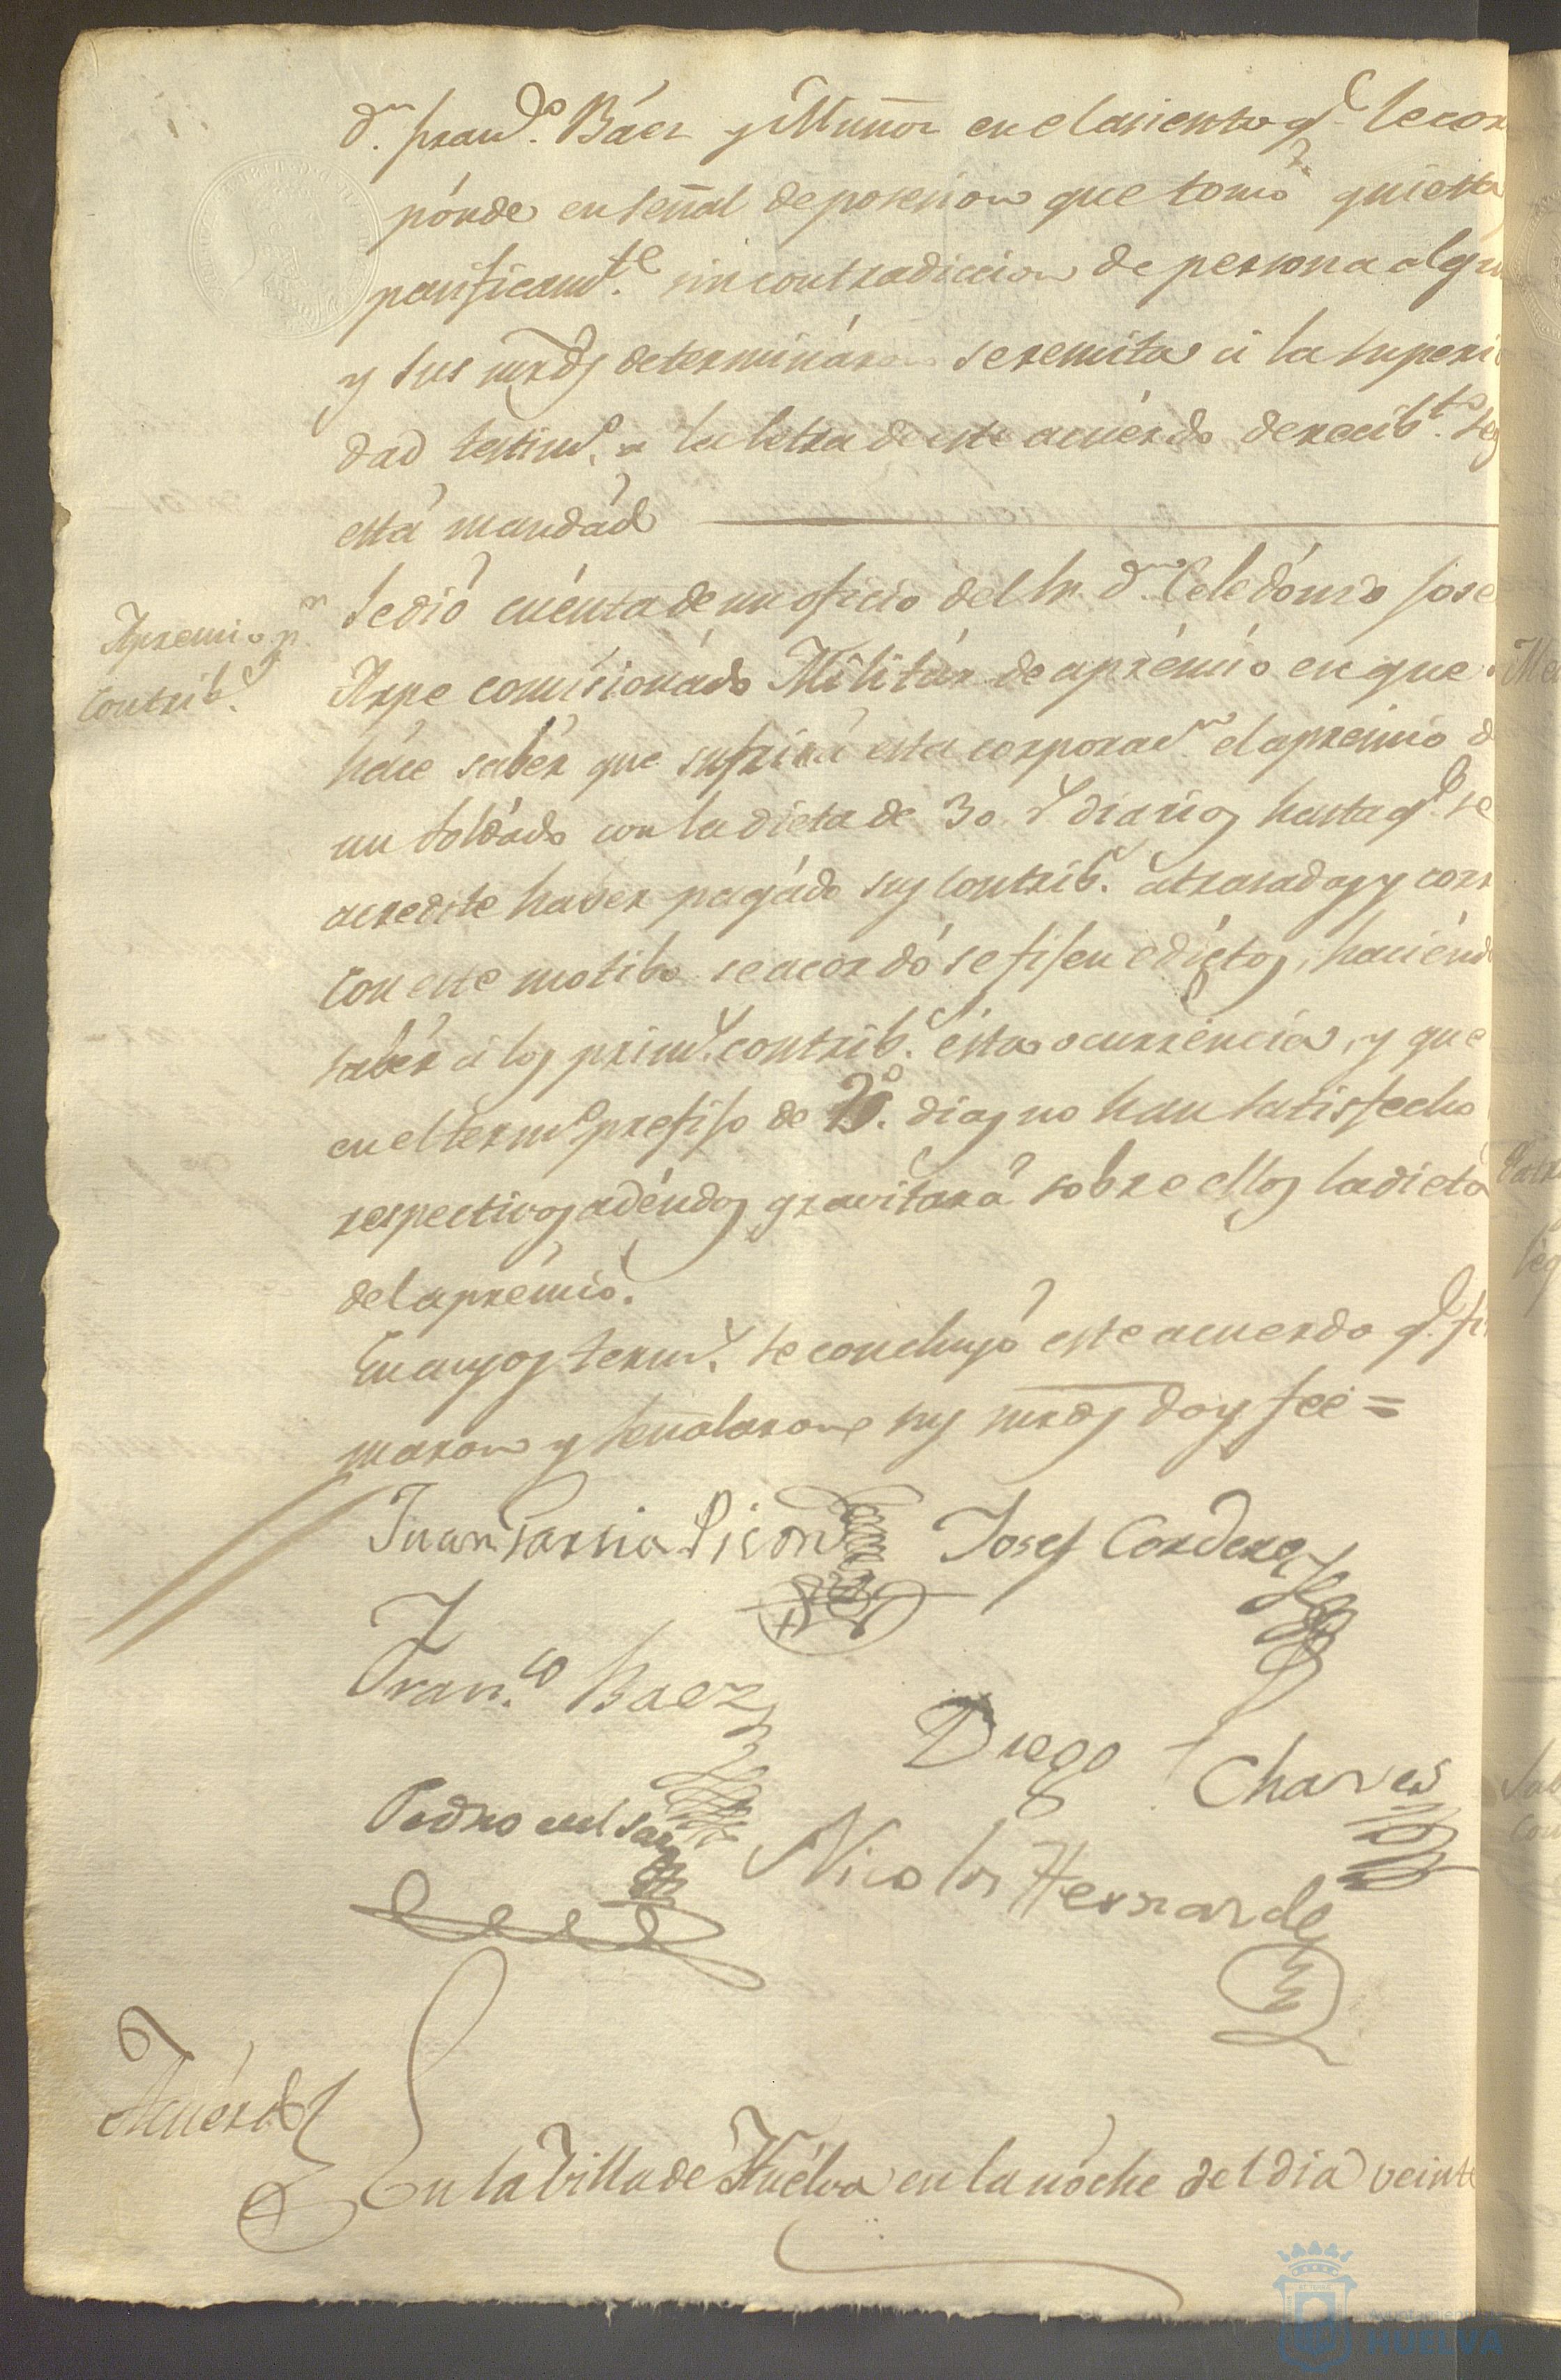 dn. Franco. Báez y Muñoz en el asiento qe. le cor
pónde en señal de posesion que tomó quieta
pasificamte. sin contradiccion de persona algu
y sus mrds determináron se remita á la superi
dad testimo. a la letra de este acuérdo de recibto. seg
está mandádo
Apremio pr.
Contribs.
Se dió cuénta de un oficio del Sr. dn. Celedónio Jose
Arpe comisionádo Militár de aprémio en que
háce sabér que sufrirá esta corporacn. el apremio d
un soldádo con la dieta de 30 rs diarios hasta qe. se
acredite haver pagádo sus contribs. atrasadas y corr
Con este motibo se acordó se fisen edictos, haciénd
sabér á los primrs. contribs. ésta ocurréncia, y que
en el termo. prefiso de dias no han satisfecho
respectivos adéudos gravitará sobre ellos la dieta
del aprémio.
En cuyos termos. se concluyó este acuerdo qe. fir
maron y señalaron sus mrds doy fee =
Juan Garsia Pison Josef Cordero
Franco. Baez
Diego Chaves
Pedro
Nicolas Hernandes
Acuérdo
En la Villa de Huélva en la nóche del dia veinte
HUELVA